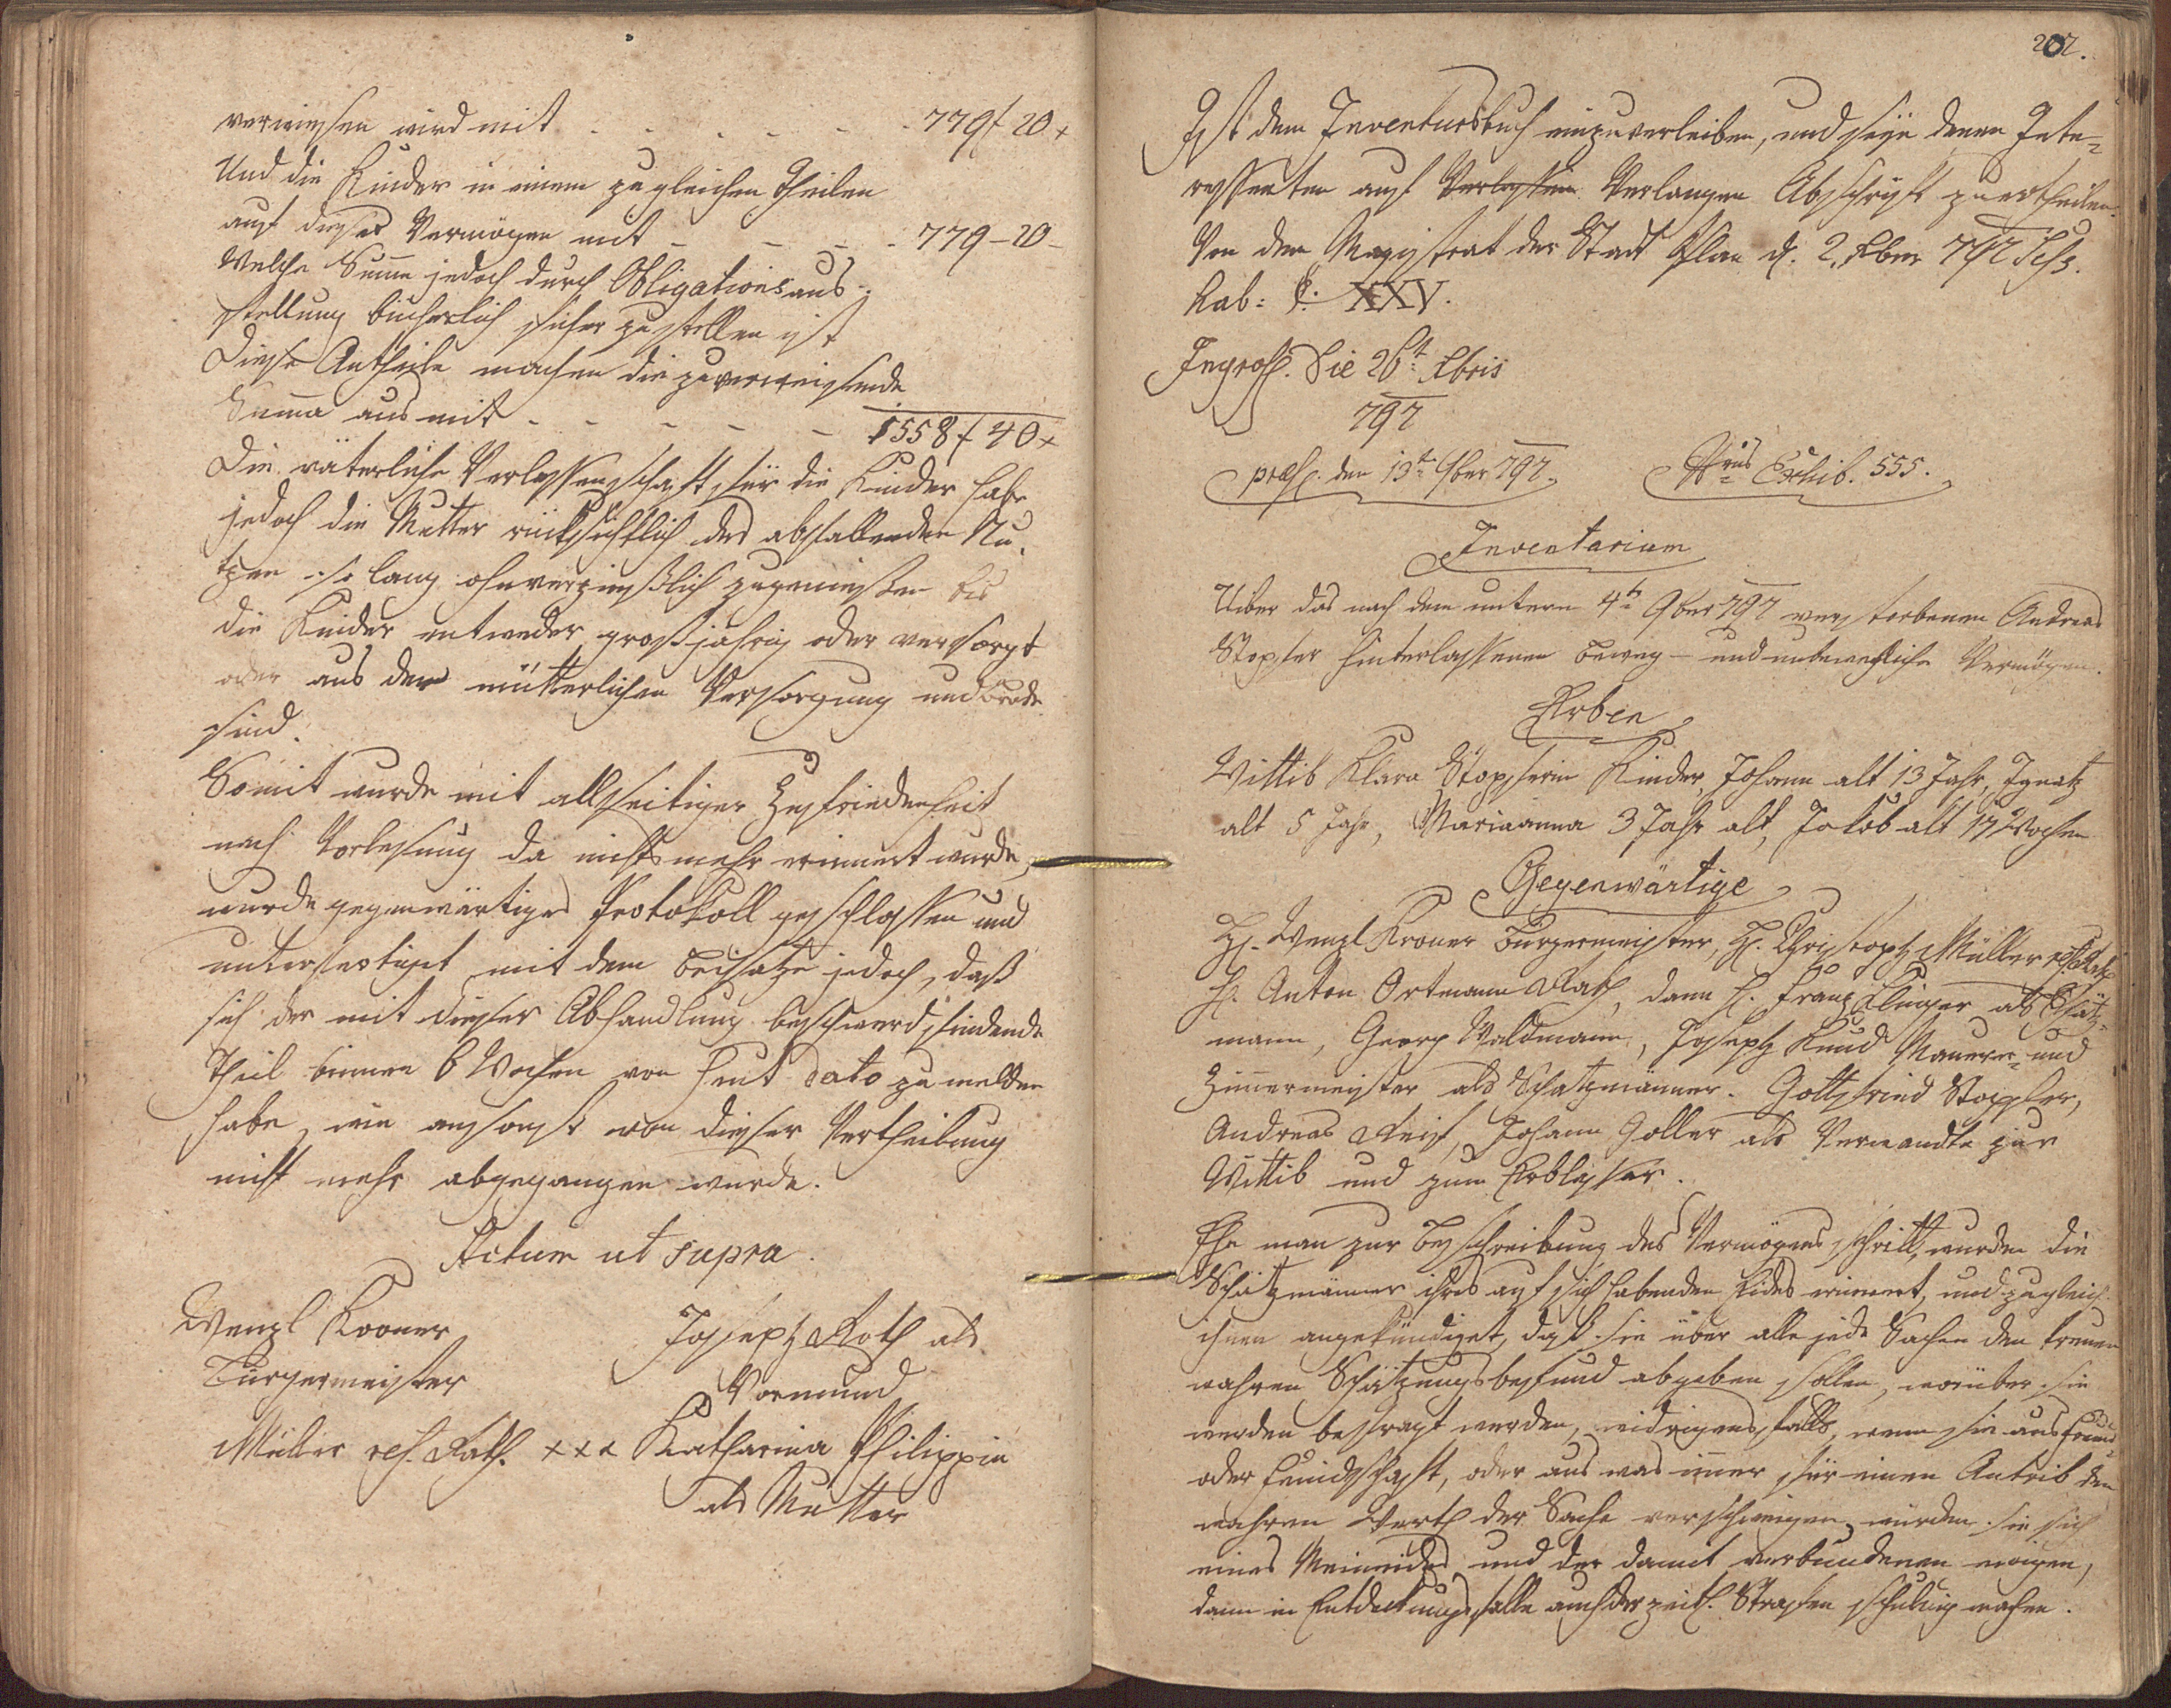 verwiesen wird mit - - - - - - 779 f 20 x
Und die Kinder in einem zu gleichen Theilen
auf dieses Vermögen mit - - - - 779 - 20 -
Welche Summe jedoch durch Obligationsaus-
stellung bücherlich sicher zu stellen ist
Diese Antheile machen die zu verweisende
Summa aus mit - - - - - 1558 f 40 x
Die väterliche Verlassenschaft für die Kinder habe
jedoch die Mutter rücksichtlich des abfallenden Nu-
tzen so lang ohnverzinßlich zugenießen bis
die Kinder entweder großjährig oder versorgt
oder aus der mütterlichen Versorgung und Brode
sind.
Somit wurde mit allseitiger Zufriedenheit
nach Vorlesung da nichts mehr erinnert wurde,
wurde gegenwärtiges Protokoll geschlossen und
unterfertiget mit dem Beisatze jedoch, daß
sich der mit dieser Abhandlung beschwerd findende
Theil binnen 6 Wochen von heut dato zu melden
habe, wie ansonst von dieser Vertheilung
nicht mehr abgegangen wurde.
Actum ut supra.
Wenzl Kroner
Burgermeister
Müller res. Rath.
Joseph Roth als
Vormund
xxx Katharina Philippin
als Mutter
202.
Ist dem Inventursbuch einzuverleiben, und seÿe denen Inte-
ressenten auf Verlassen Verlangen Abschrift zu ertheilen.
Von dem Magistrat der Stadt Plan d. 2. Xber 797
XXV.
Ingross. Die 26t Xbris
797
præs. den 13t 9ber 797.
Nrus Exhib. 555.
Inventarium
Uiber das nach dem untern 4t 9ber 797 verstorbenen Andreas
Stopfer hinterlassenen beweg- und unbewegliche Vermögen.
Erben
Wittib Klara Stopferin Kinder, Johann alt 13 Jahr, Ignatz
alt 5 Jahr, Mariaanna 3 Jahr alt, Jakob alt 17 Wochen
Gegenwärtige
H. Wenzl Kroner Burgermeister, H. Christoph Müller res. Rath
H. Anton Ortmann Rath, dann H. Franz Klinger als Schätz-
mann, Georg Waldmann, Joseph Kund Maurer- und
Zimmermeister als Schatzmänner. Gottfried Stopfer,
Andreas Reif, Johann Goller als Verwandte zur
Wittib und zum Erblasser.
Ehe man zur Beschreibung des Vermögens schritt, wurden die
Schätzmänner ihres auf sich habenden Eides erinnert, und zugleich
ihnen angekündiget, daß sie über alle jede Sachen den treuen
wahren Schätzungsbefund abgeben sollen, worüber sie
werden befragt werden, widrigensfalls, wenn sie aus Freund-
oder Feindschaft, oder aus was immer für einen Antrib den
wahren Werth der Sache verschweigen würden sie sich
eines Meineides und der damit verbundenen ewigen,
dann in Entdeckungsfalle auch der zeitl. Strafen schuldig machen.